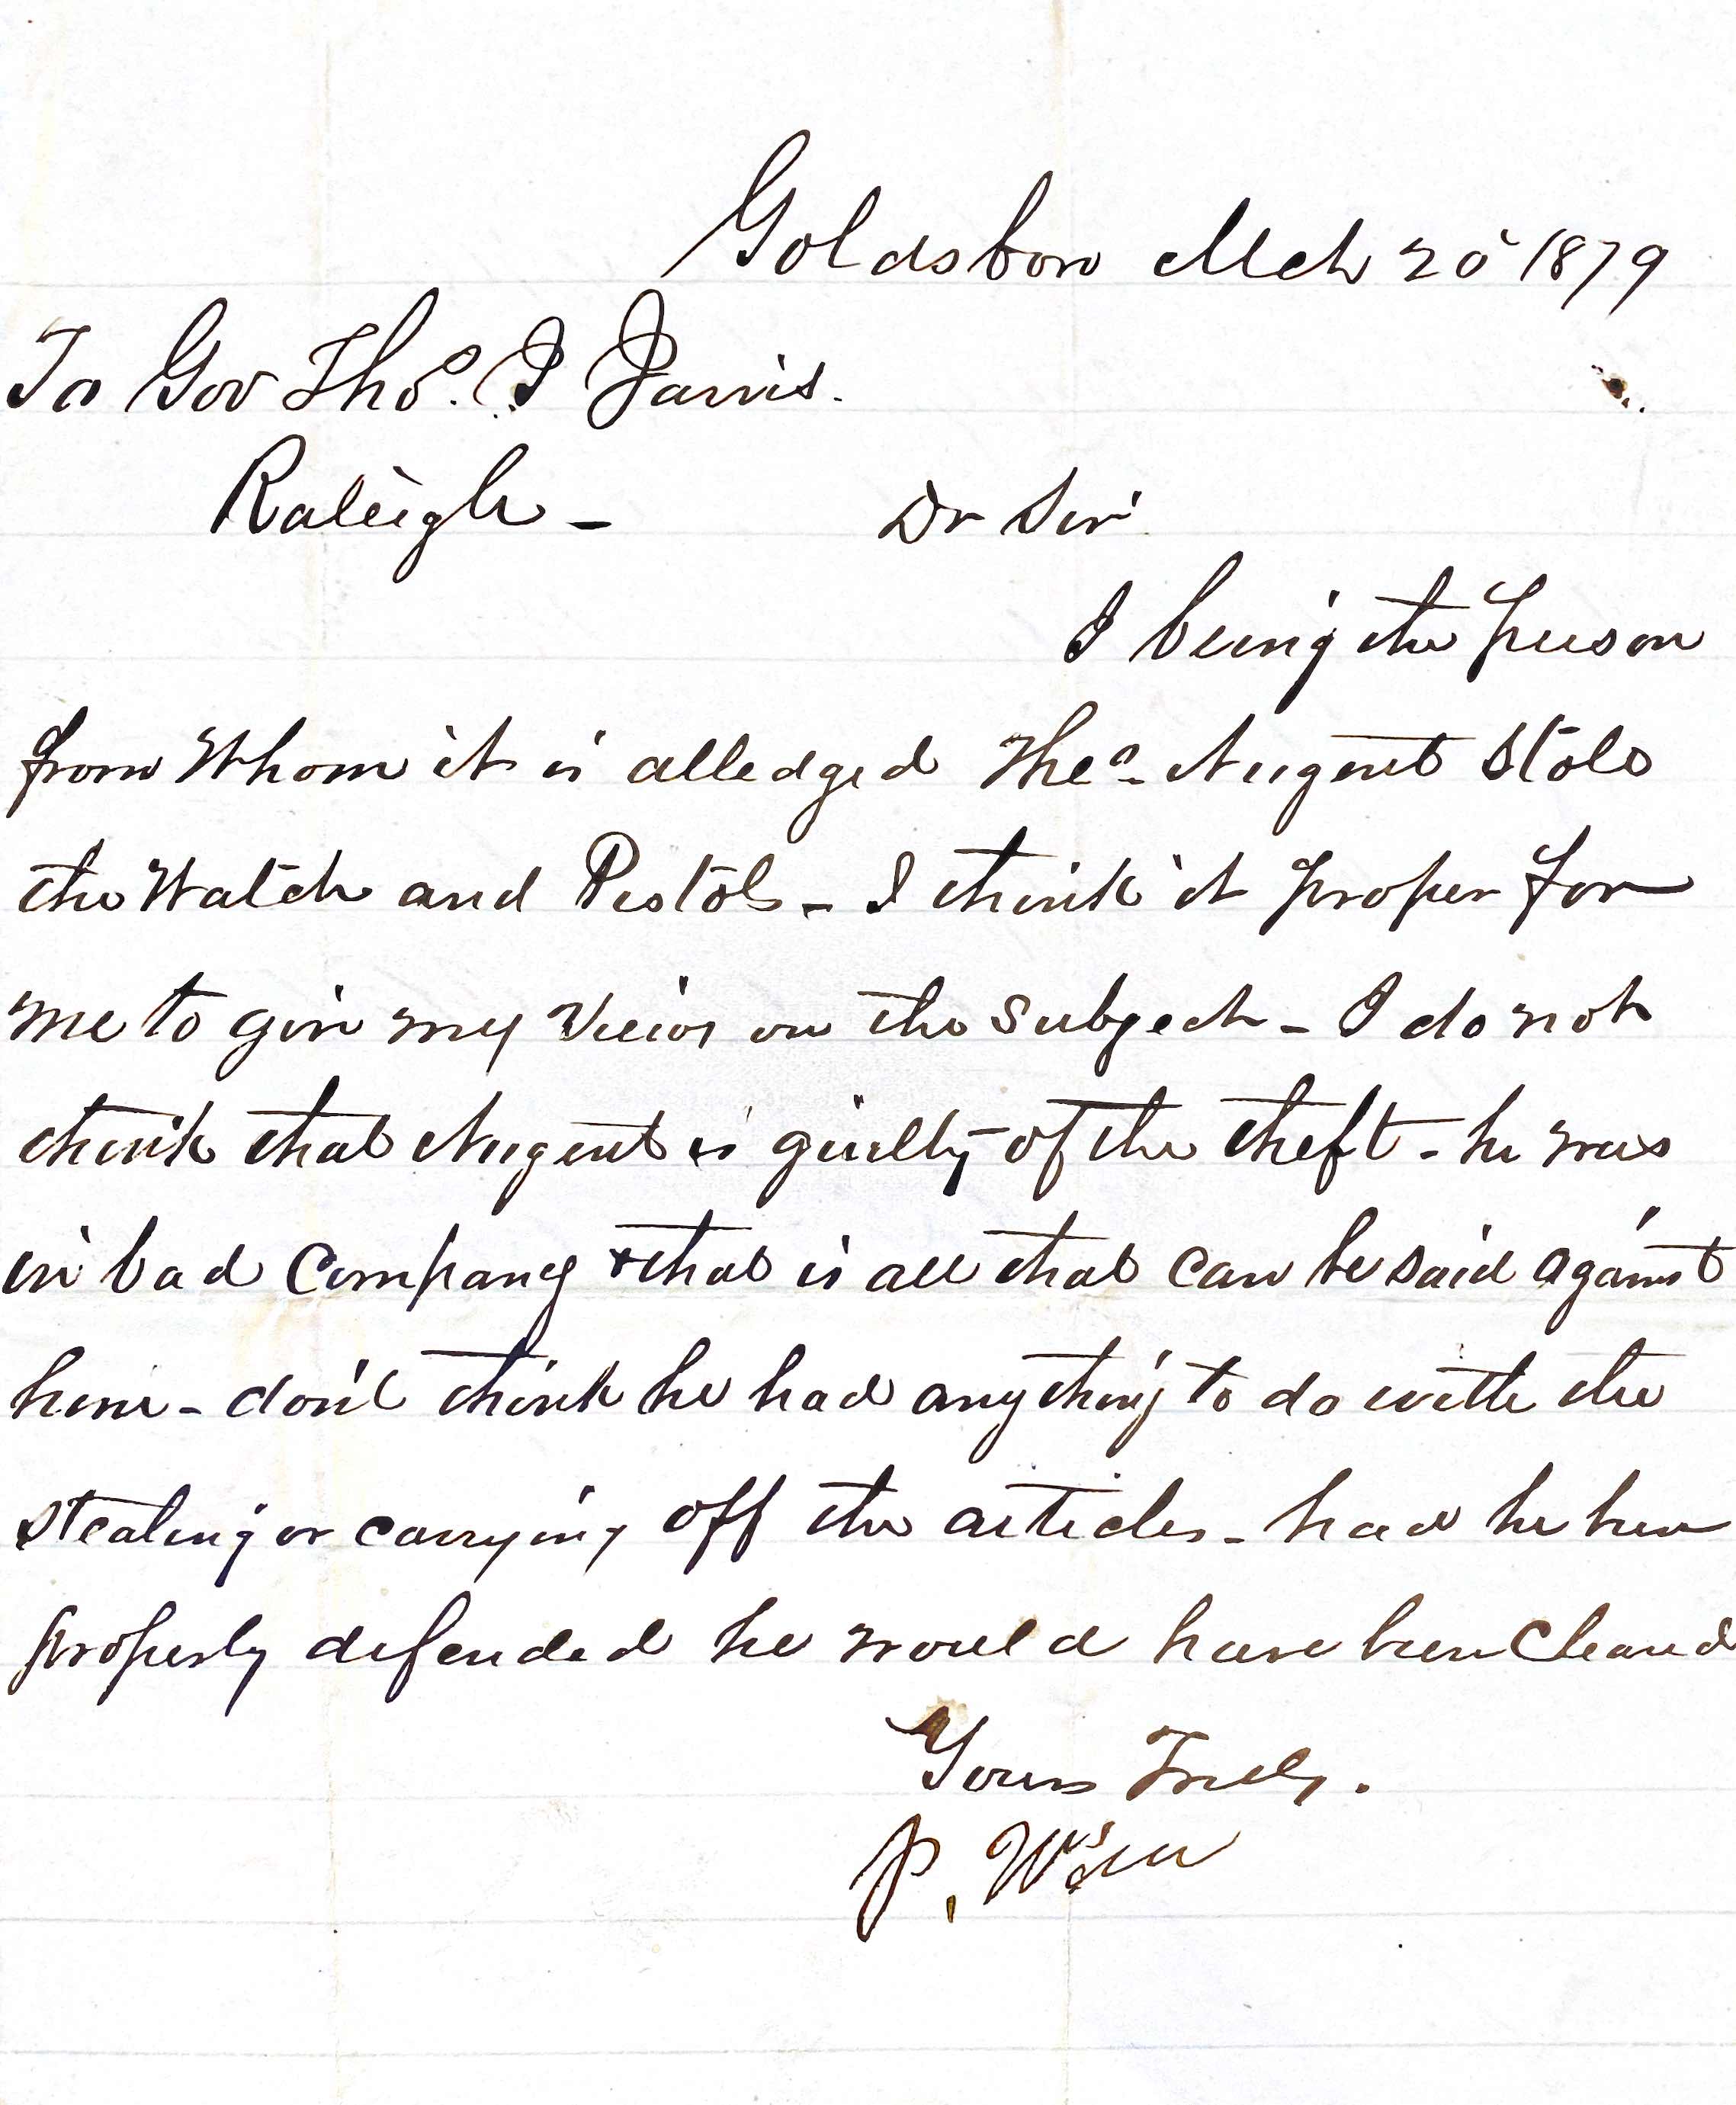 Goldsboro Mch 25 1879
To Gov Thos. J Jarvis.
Raleigh - Dr Sir
I being the person
from Whom it is alledged Theo. Nugent Stole
the Watch and Pistols - I think it proper for
me to give my views on the subject - I do not
think that Nugent is guilty - of the theft - he was
in bad Company & that is all that can be said against
him - don't think he had anything to do with the
stealing or carrying off the articles - had he been
properly defended he would have been Cleared
Yours Truly.
P.